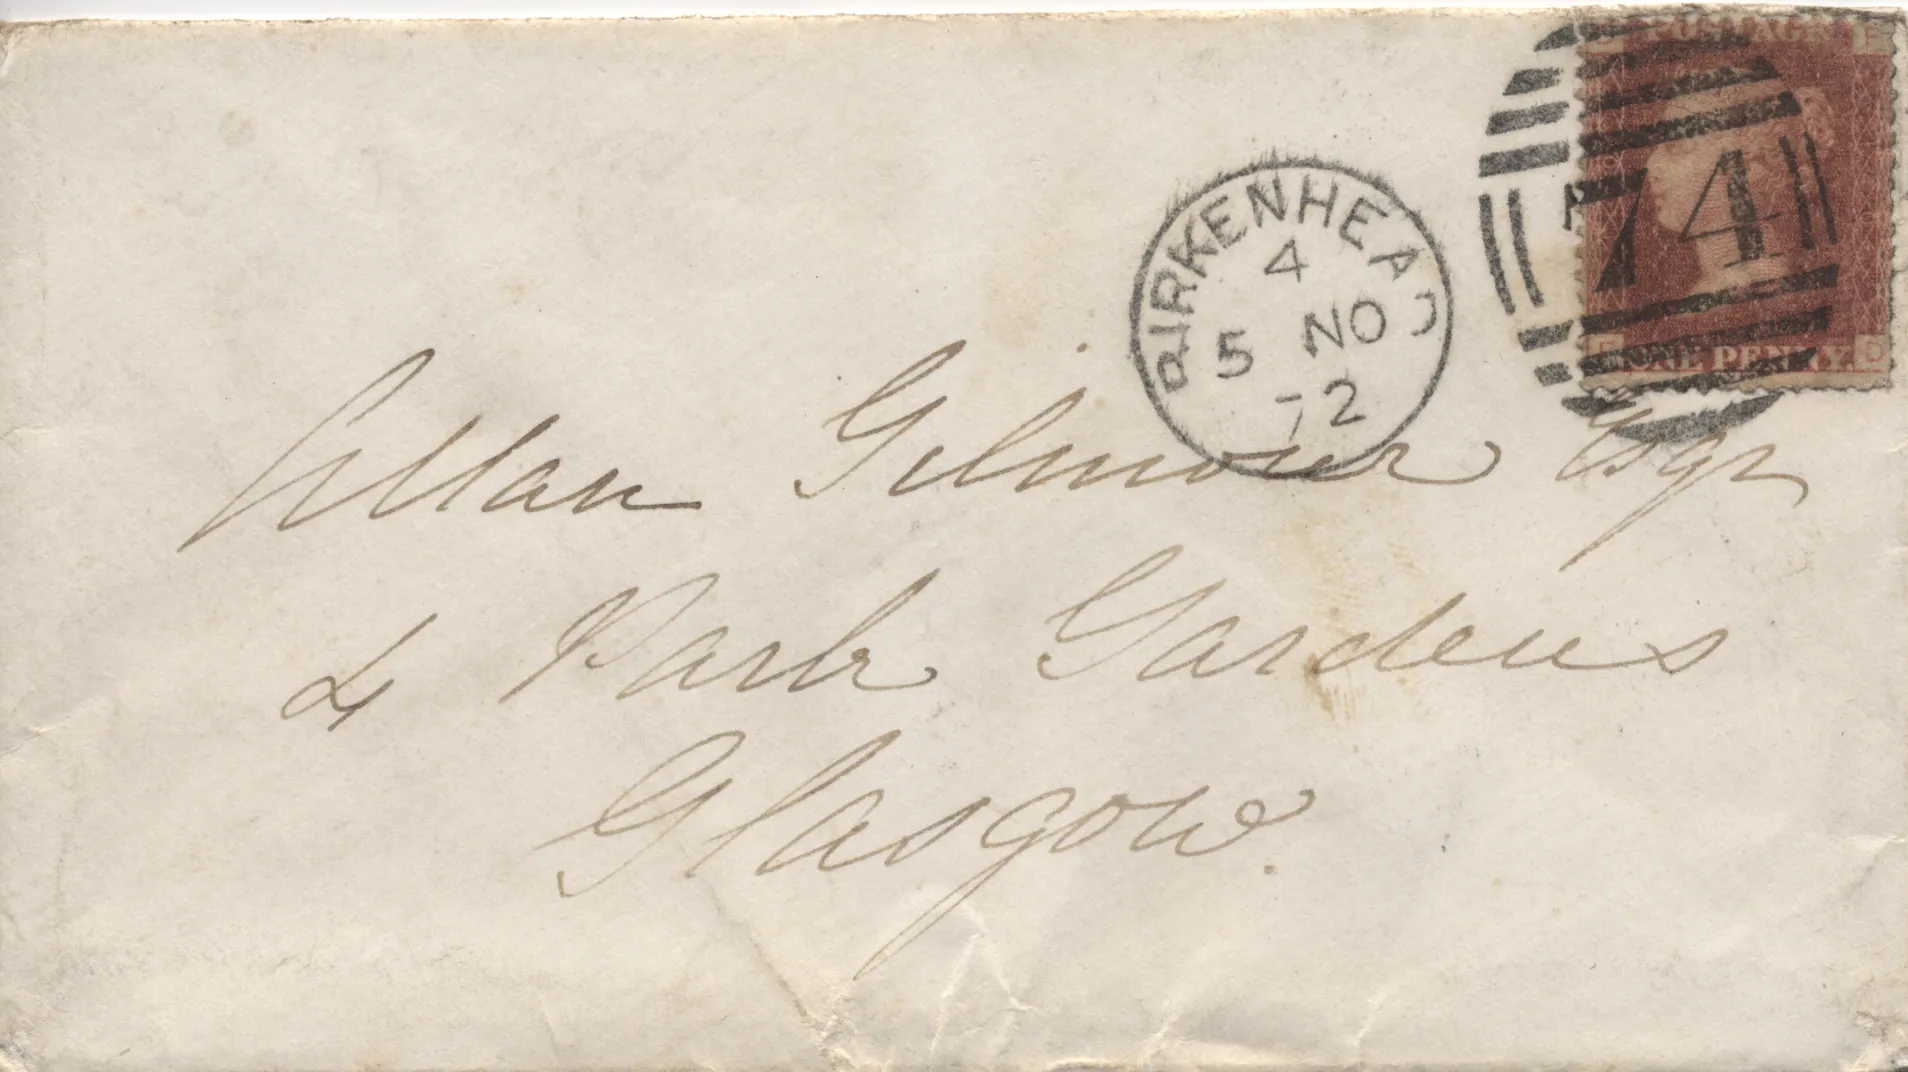 POSTAGE
74
ONE PENNY
BIRKENHEAD
4
5 NO
72
Allan Gilmour Esqr
4 Park Gardens
Glasgow.